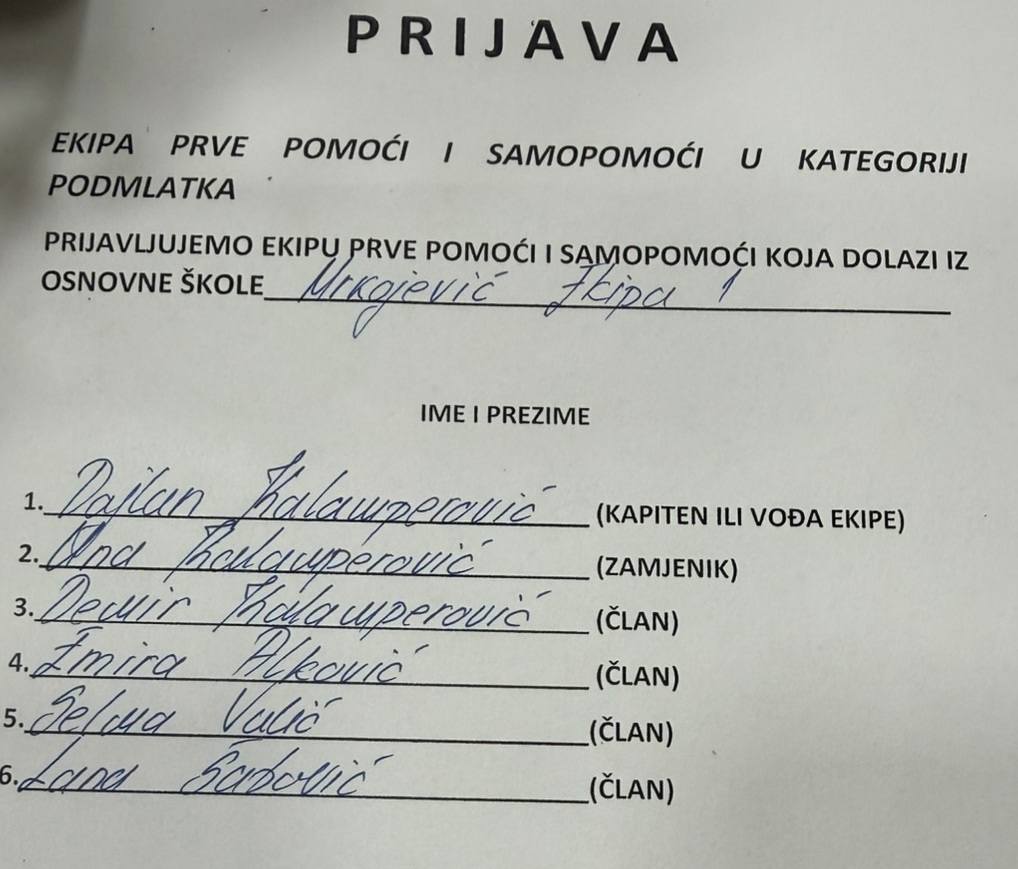 PRIJAVA
EKIPA PRVE POMOĆI I SAMOPOMOĆI U KATEGORIJI
PODMLATKA
PRIJAVLJUJEMO EKIPU PRVE POMOĆI I SAMOPOMOĆI KOJA DOLAZI IZ
OSNOVNE ŠKOLE Mrkojević Ekipa 1
IME I PREZIME
1. Dajlan Kalamperović (KAPITEN ILI VOĐA EKIPE)
2. Ana Kalamperović (ZAMJENIK)
3. Demir Kalamperović (ČLAN)
4. Emira Alković (ČLAN)
5. Selma Vulić (ČLAN)
6. Lana (ČLAN)